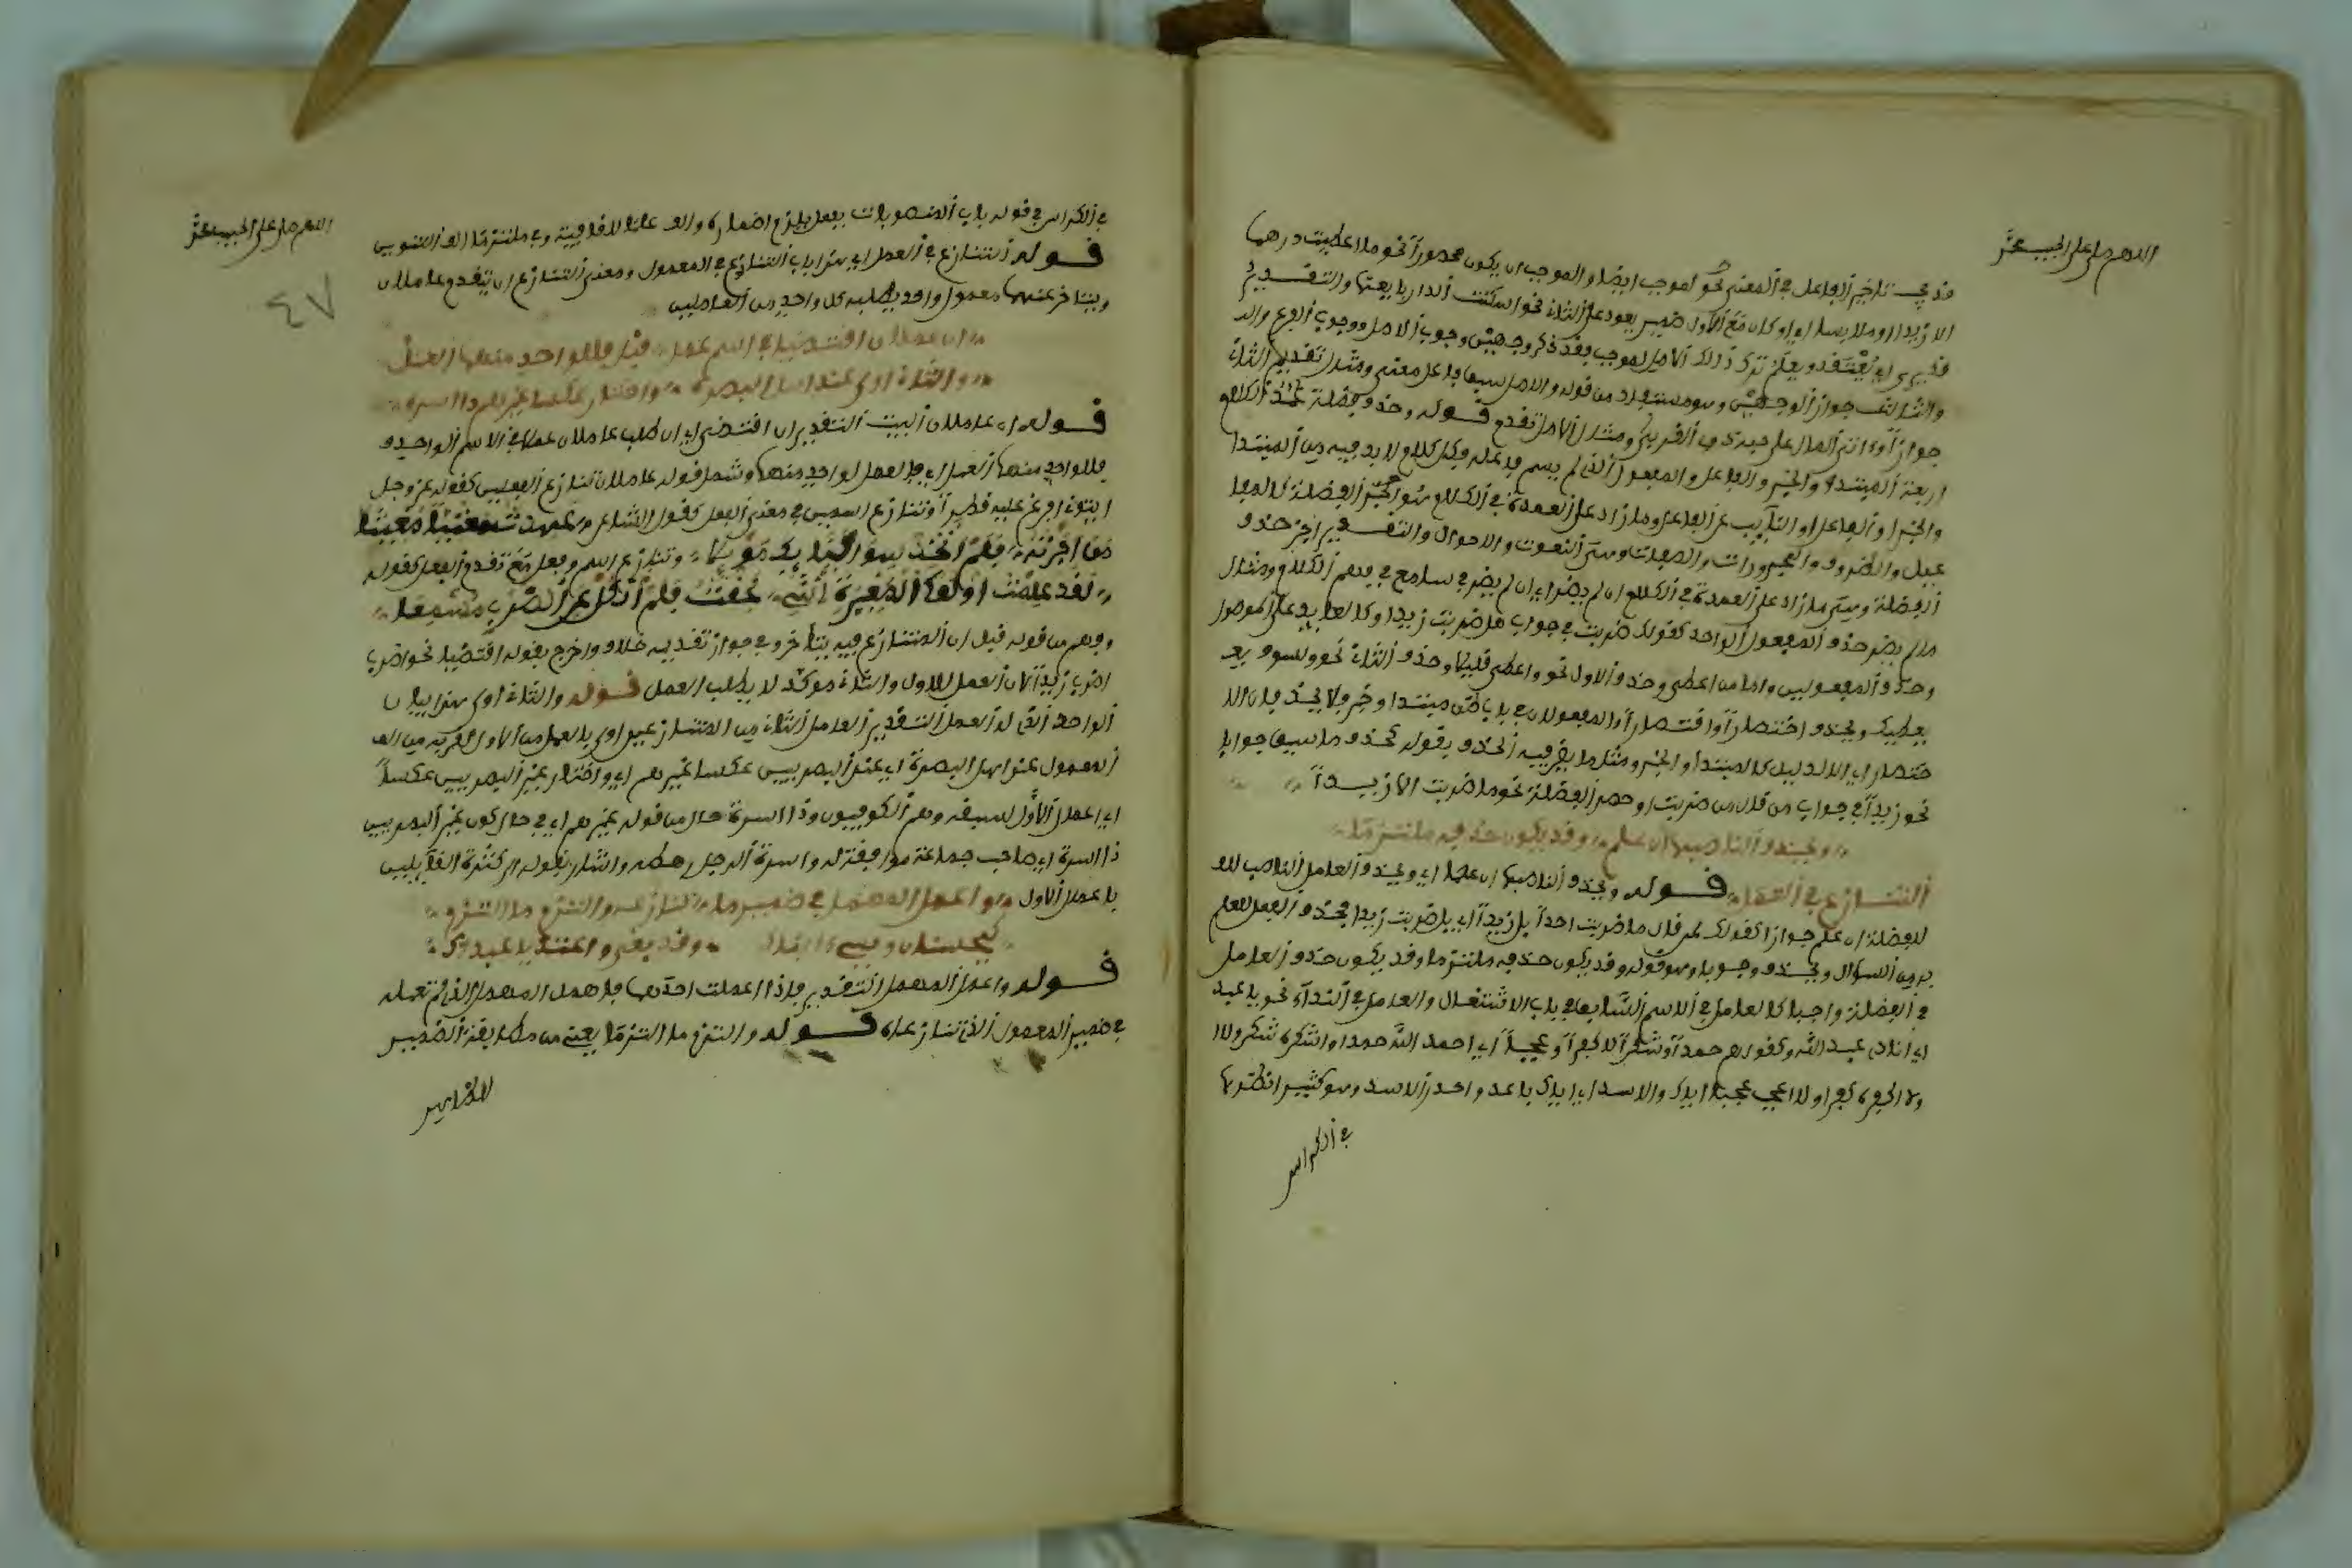 اللهم صل على الحبيب محمد
قد يجب تاخير الفاعل في المعنى نحو لموجب ايضا والموجب ان يكون محصورا نحو ما اعطيت درهما
الا زيدا او ملابسا اي او كان مع الاول ضمير يعود على الثاني نحو اسكنت الدار بانيها والتقديم
قد يرى اي يعتقد ويعلم ترك ذلك الاصل لموجب فقد ذكر وجهين وجوب الاصل ووجوب الفرع والد
والثالث جواز الوجهين وهو مستفاد من قوله والاصل سبق فاعل معنى ومثال تقديم الثاني
جوازا واتى المال على حبه ذوي القربى ومثال الاصل تقدم قوله وحذف فضلة عمدة الكلام
اربعة المبتدا والخبر والفاعل والمفعول الذي لم يسم فاعله وكل كلام لا بد فيه من المبتدا
والخبر او الفاعل او النايب عن الفاعل وما زاد على العمدة في الكلام هو الفضلة كالمفا
عيل والظروف والمجرورات والصفات وهي النعوت والاحوال والتفسير اجز حذف
الفضلة وهي ما زاد على العمدة في الكلام ان لم يضر اي ان لم يضر في سامع في فهم الكلام ومثال
ما لم يضر حذف المفعول الواحد كقولك ضربت في جواب هل ضربت زيدا وكالعايد على الموصول
وحذف المفعولين واما من اعطى وحذف الاول نحو واعطى قليلا وحذف الثاني نحو ولسوف يعـ
يعطيك ويحذف اختصارا او اقتصارا والمفعولان في باب ظن مبتدا وخبر فلا يحذفان الا
ختصارا اي الا لدليل كالمبتدا والخبر ومثل ما يضر فيه الحذف بقوله كحذف ما سيق جوابا
نحو زيدا في جواب من قال من ضربت او حصر الفضلة نحو ما ضربت الا زيدا
ويحذف الناصبها ان علما وقد يكون حذفه ملتزما
التنازع في العمل قوله ويحذف الناصبها ان علما اي ويحذف العامل الناصب للفـ
للفضلة ان علم جوازا كقولك لمن قال ما ضربت احدا بل زيدا اي بل ضربت زيدا فحذف الفعل للعلم
به من السوال ويحذف وجوبا وهو قوله وقد يكون حذفه ملتزما وقد يكون حذف العامل
في الفضلة واجبا كالعامل في الاسم السابق في باب الاشتغال والعامل في النداء نحو يا عبد
اي انادي عبد الله وكقولهم حمدا وشكرا لا كفرا وعجبا اي احمد الله حمدا واشكره شكرا ولا
ولا اكفره كفرا ولا اعجب عجبا اياك والاسد اي اياك باعد واحذر الاسد وهو كثير انظرها
في الكراس
اللهم صل على الحبيب محمد
٤٧
في الكراس في قوله باب المنصوبات بفعل يلزم اضماره والف علما للاثنية وفي ملتزما الف التنوين
قوله التنازع في العمل اي هذا باب التنازع في المعمول ومعنى التنازع ان يتقدم عاملان
ويتاخر عنهما معمول واحد يطلبه كل واحد من العاملين
ان عاملان اقتضيا في اسم عمل قبل فللواحد منهما العمل
والثان اولى عند اهل البصره واختار عكسا غيرهم ذا اسره
قوله ان عاملان البيت التقدير ان اقتضى اي ان طلب عاملان عملا في الاسم الواحد و
فللواحد منهما العمل اي فالعمل لواحد منهما وشمل قوله عاملان تنازع الفعلين كقوله عز وجل
اتوني افرغ عليه قطرا وتنازع اسمين في معنى الفعل كقول الشاعر عهدت مغيثا مغنيا
من اجرته فلم اتخذ الا فناءك موئلا وتنازع اسم وفعل مع تقدم الفعل كقوله
لقد علمت اولى المغيرة انني لحقت فلم انكل عن الضرب مسمعا
وفهم من قوله قبل ان المتنازع فيه يتاخر وفي جواز تقديمه خلاف واخرج بقوله اقتضيا نحو اضرب
اضرب زيدا لان العمل للاول والثاني موكد لا يطلب العمل قوله والثان اولى هذا بيان
الواحد الذي له العمل التقدير العامل الثاني من المتنازعين اولى بالعمل من الاول لقربه من الـ
المعمول عند اهل البصرة اي عند البصريين عكسا غيرهم اي واختار غير البصريين عكسا
اي اعمال الاول لسبقه وهم الكوفيون وذا اسرة حال من قوله غيرهم اي في حال كون غير البصريين
ذا اسرة اي صاحب جماعة موافقة له واسرة الرجل رهطه واشار بقوله الى كثرة القائلين
باعمال الاول واعمل المهمل في ضمير ما تنازعاه والتزم ما التزما
كيحسنان ويسيء ابناكا وقد بغى واعتديا عبداكا
قوله واعمل المهمل التقدير فاذا اعملت احدهما فاهمل المهمل الذي لم تعمله
في ضمير المعمول الذي تنازعاه قوله والتزم ما التزما يعني من مطابقة الضمير
للظاهر